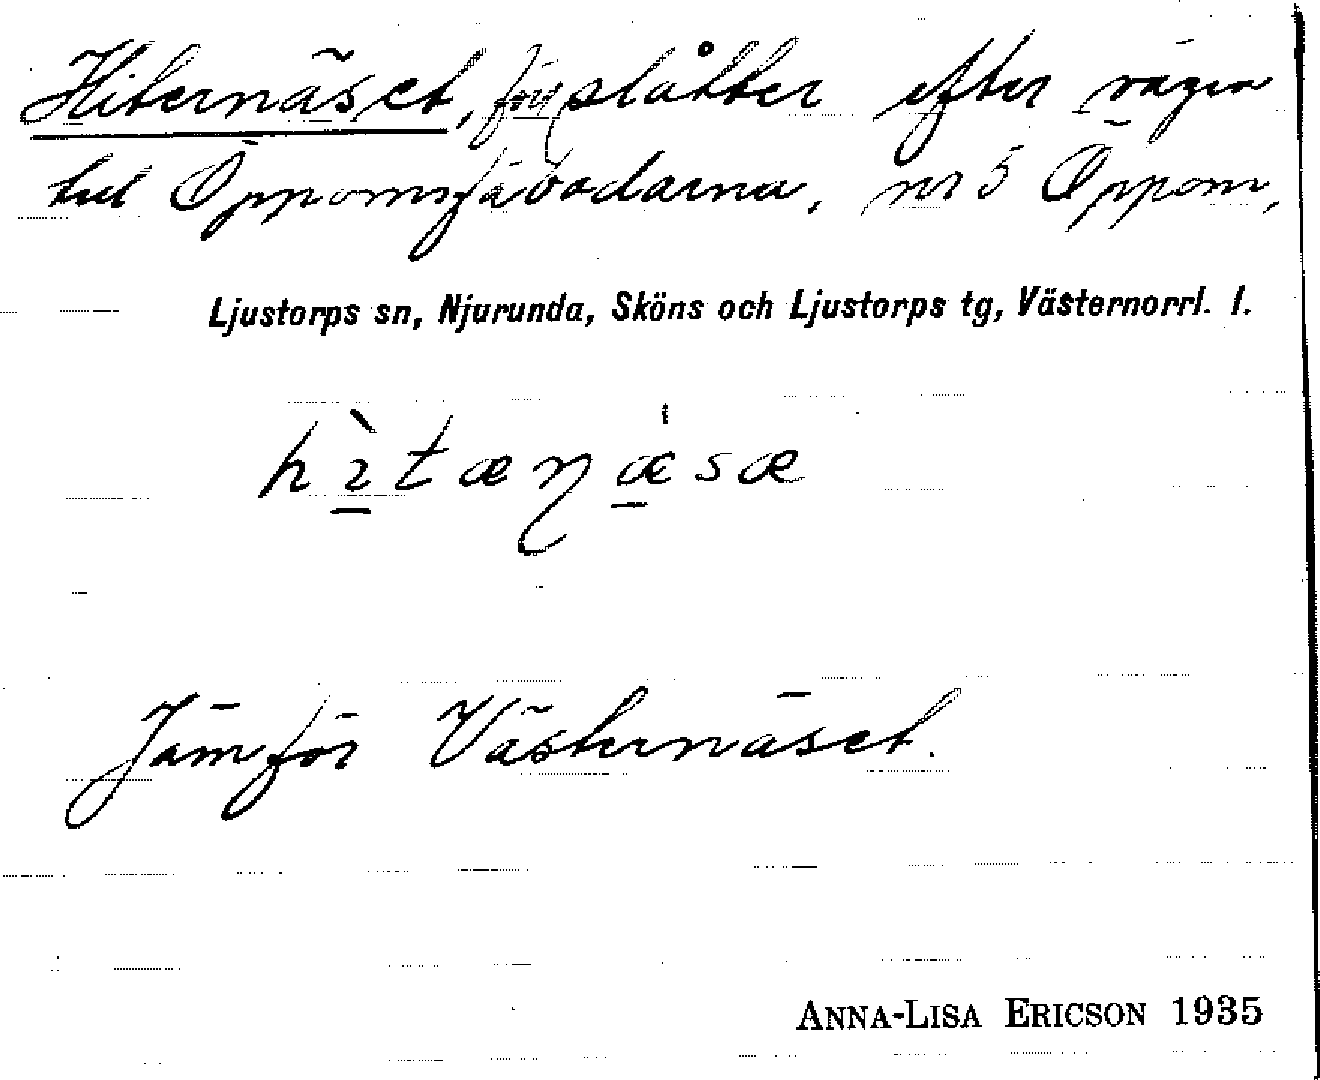 Hiternäset, förr slåtter efter vägen
till Öppomsfäbodarna, nr 5 Öppom,
Ljustorps sn, Njurunda, Sköns och Ljustorps tg, Västernorrl. l.
Jämför Västernäset.
ANNA-LISA ERICSON 1935